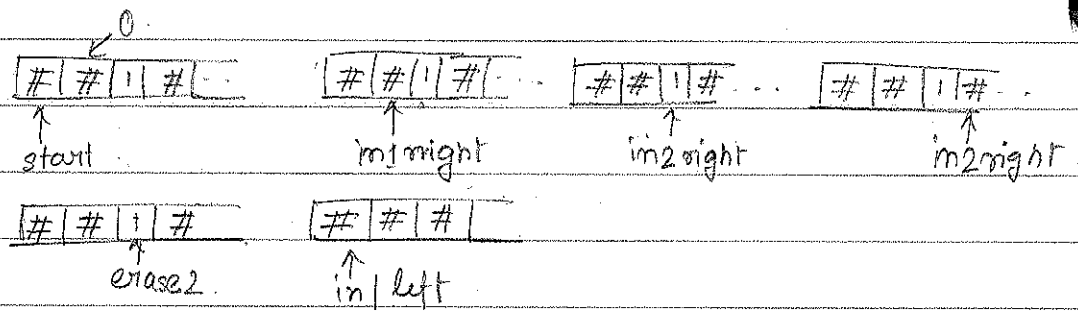 0
# # 1 # ... # # 1 # ... # # 1 # ... # # 1 # ...
start in1right in2right in2right
# # 1 # # # #
erase2. in1left